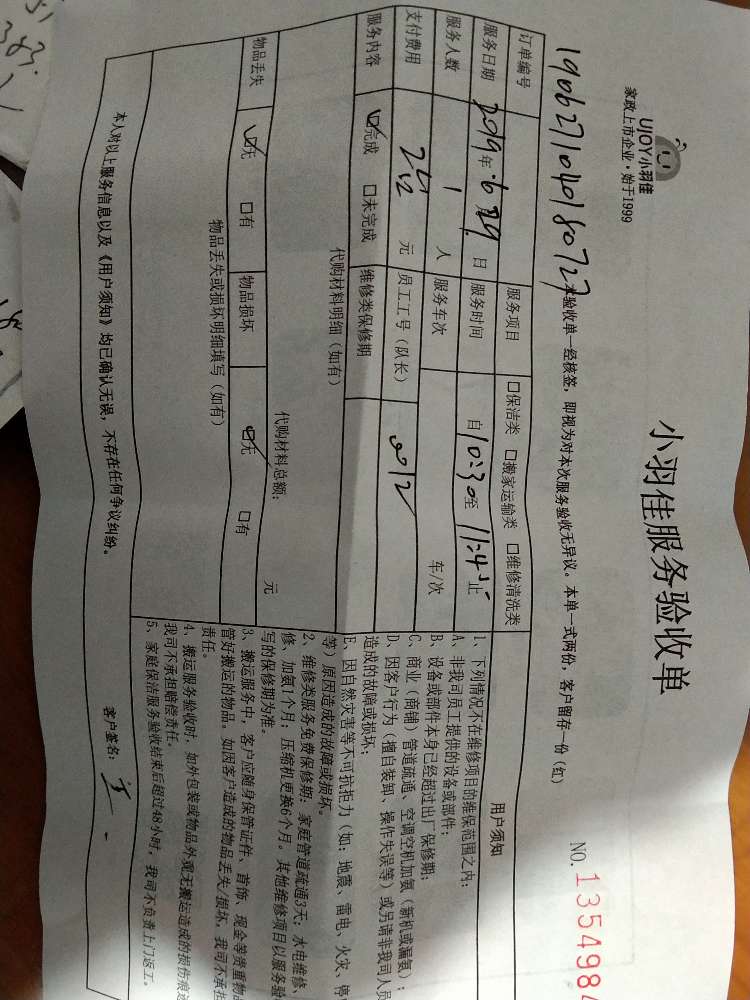 UJOY小羽佳
家政上市企业·始于1999
小羽佳服务验收单
NO.
135498
190627104018072
本验收单一经核签，即视为对本次服务验收无异议。本单一式两份，客户留存一份（红）
订单编号 服务项目 □保洁类 □搬家运输类 □维修清洗类
服务日期 2019年6月29日 服务时间 自10:30至11:45止
服务人数 1 人 服务车次 车/次
支付费用 元 员工工号（队长） 012
服务内容 ☑完成 □未完成 维修类保修期
代购材料明细（如有）
代购材料总额： 元
物品丢失 ☑无 □有 物品损坏 ☑无 □有
物品丢失或损坏明细填写（如有）
本人对以上服务信息以及《用户须知》均已确认无误，不存在任何争议纠纷。
用户须知
1、下列情况不在维修项目的维保范围之内：
A、非我司员工提供的设备或部件；
B、设备或部件本身已经超过出厂保修期；
C、商业（商铺）管道疏通、空调空机加氨（新机或漏氨）；
D、因客户行为（擅自装卸、操作失误等）或另请非我司人员
造成的故障或损坏；
E、因自然灾害等不可抗拒力（如：地震、雷电、火灾、停
等）原因造成的故障或损坏。
2、维修类服务免费保修期：家庭管道疏通3天；水电维修、
修、加氨1个月；压缩机更换6个月。其他维修项目以服务验
写的保修期为准。
3、搬运服务中，客户应随身保管证件、首饰、现金等贵重物
管好搬运的物品。如因客户造成的物品丢失/损坏，我司不承担
责任。
4、搬运服务验收时，如外包装或物品外观无搬运造成的损伤痕迹
我司不承担赔偿责任。
5、家庭保洁服务验收结束后超过48小时，我司不负责上门返工。
客户签名：